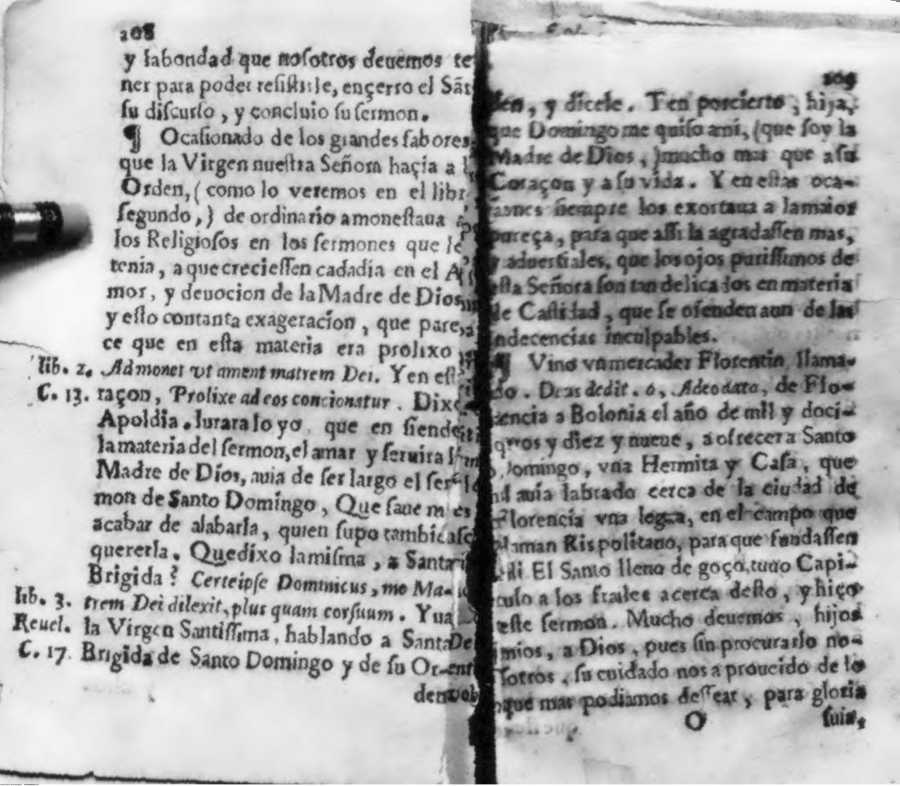 208
y labondad que nosotros deuemos te
ner para poder resistirle, ençerro el Sãt
su discurso, y concluio su sermon.
¶ Ocasionado de los grandes fabores
que la Virgen nuestra Señora haçia a l
Orden, (como lo veremos en el libr
segundo,) de ordinario amonestaua a
los Religiosos en los sermones que le
tenia, a que creciessen cadadia en el A
mor, y deuocion de la Madre de Dios,
y esto contanta exageracion, que pare,
ce que en esta materia era prolixo
lib. 2. Admonet vt ament matrem Dei. Y en est
C. 13. raçon, Prolixe ad eos concionatur. Dixo
Apoldia. Iurara lo yo, que en siendo
la materia del sermon, el amar y seruira l
Madre de Dios, auia de ser largo el ser
mon de Santo Domingo, Que saue m
acabar de alabarla, quien supo tambiẽ
quererla. Quedixo lamisma, a Santa
Brigida? Certeipse Dominicus, me Ma-
lib. 3. trem Dei dilexit, plus quam corsuum. Y ua
Reuel. la Virgen Santissima, hablando a Santa
C. 17. Brigida de Santo Domingo y de su Or
den
209
den, y dicele. Ten porcierto, hija,
que Domingo me quiso ami, (que soy la
Madre de Dios,) mucho mas que a su
Coraçon y a su vida. Y en estas oca-
siones siempre los exortaua a lamaior
pureça, para que assi la agradassen mas,
y aduertiales, que los ojos purissimos de
esta Señora son tan delicados en materia
de Castidad, que se ofenden aun de las
indecencias inculpables.
¶ Vino vn mercader Florentin, llama-
do. Deus dedit. o, Adeodato, de Flo-
rencia a Bolonia el año de mil y doci-
entos y diez y nueue, a ofrecer a Santo
Domingo, vna Hermita y Casa, que
el auia labrado cerca de la ciudad de
Florencia vna legua, en el campo que
llaman Rispolitano, para que fundassen
alli El Santo lleno de goço, tuuo Capi-
tulo a los frailes acerca desto, y hiço
este sermon. Mucho deuemos, hijos
mios, a Dios, pues sin procurarlo no-
sotros, su cuidado nos a proueido de lo
que mas podiamos dessear, para gloria
O suia,